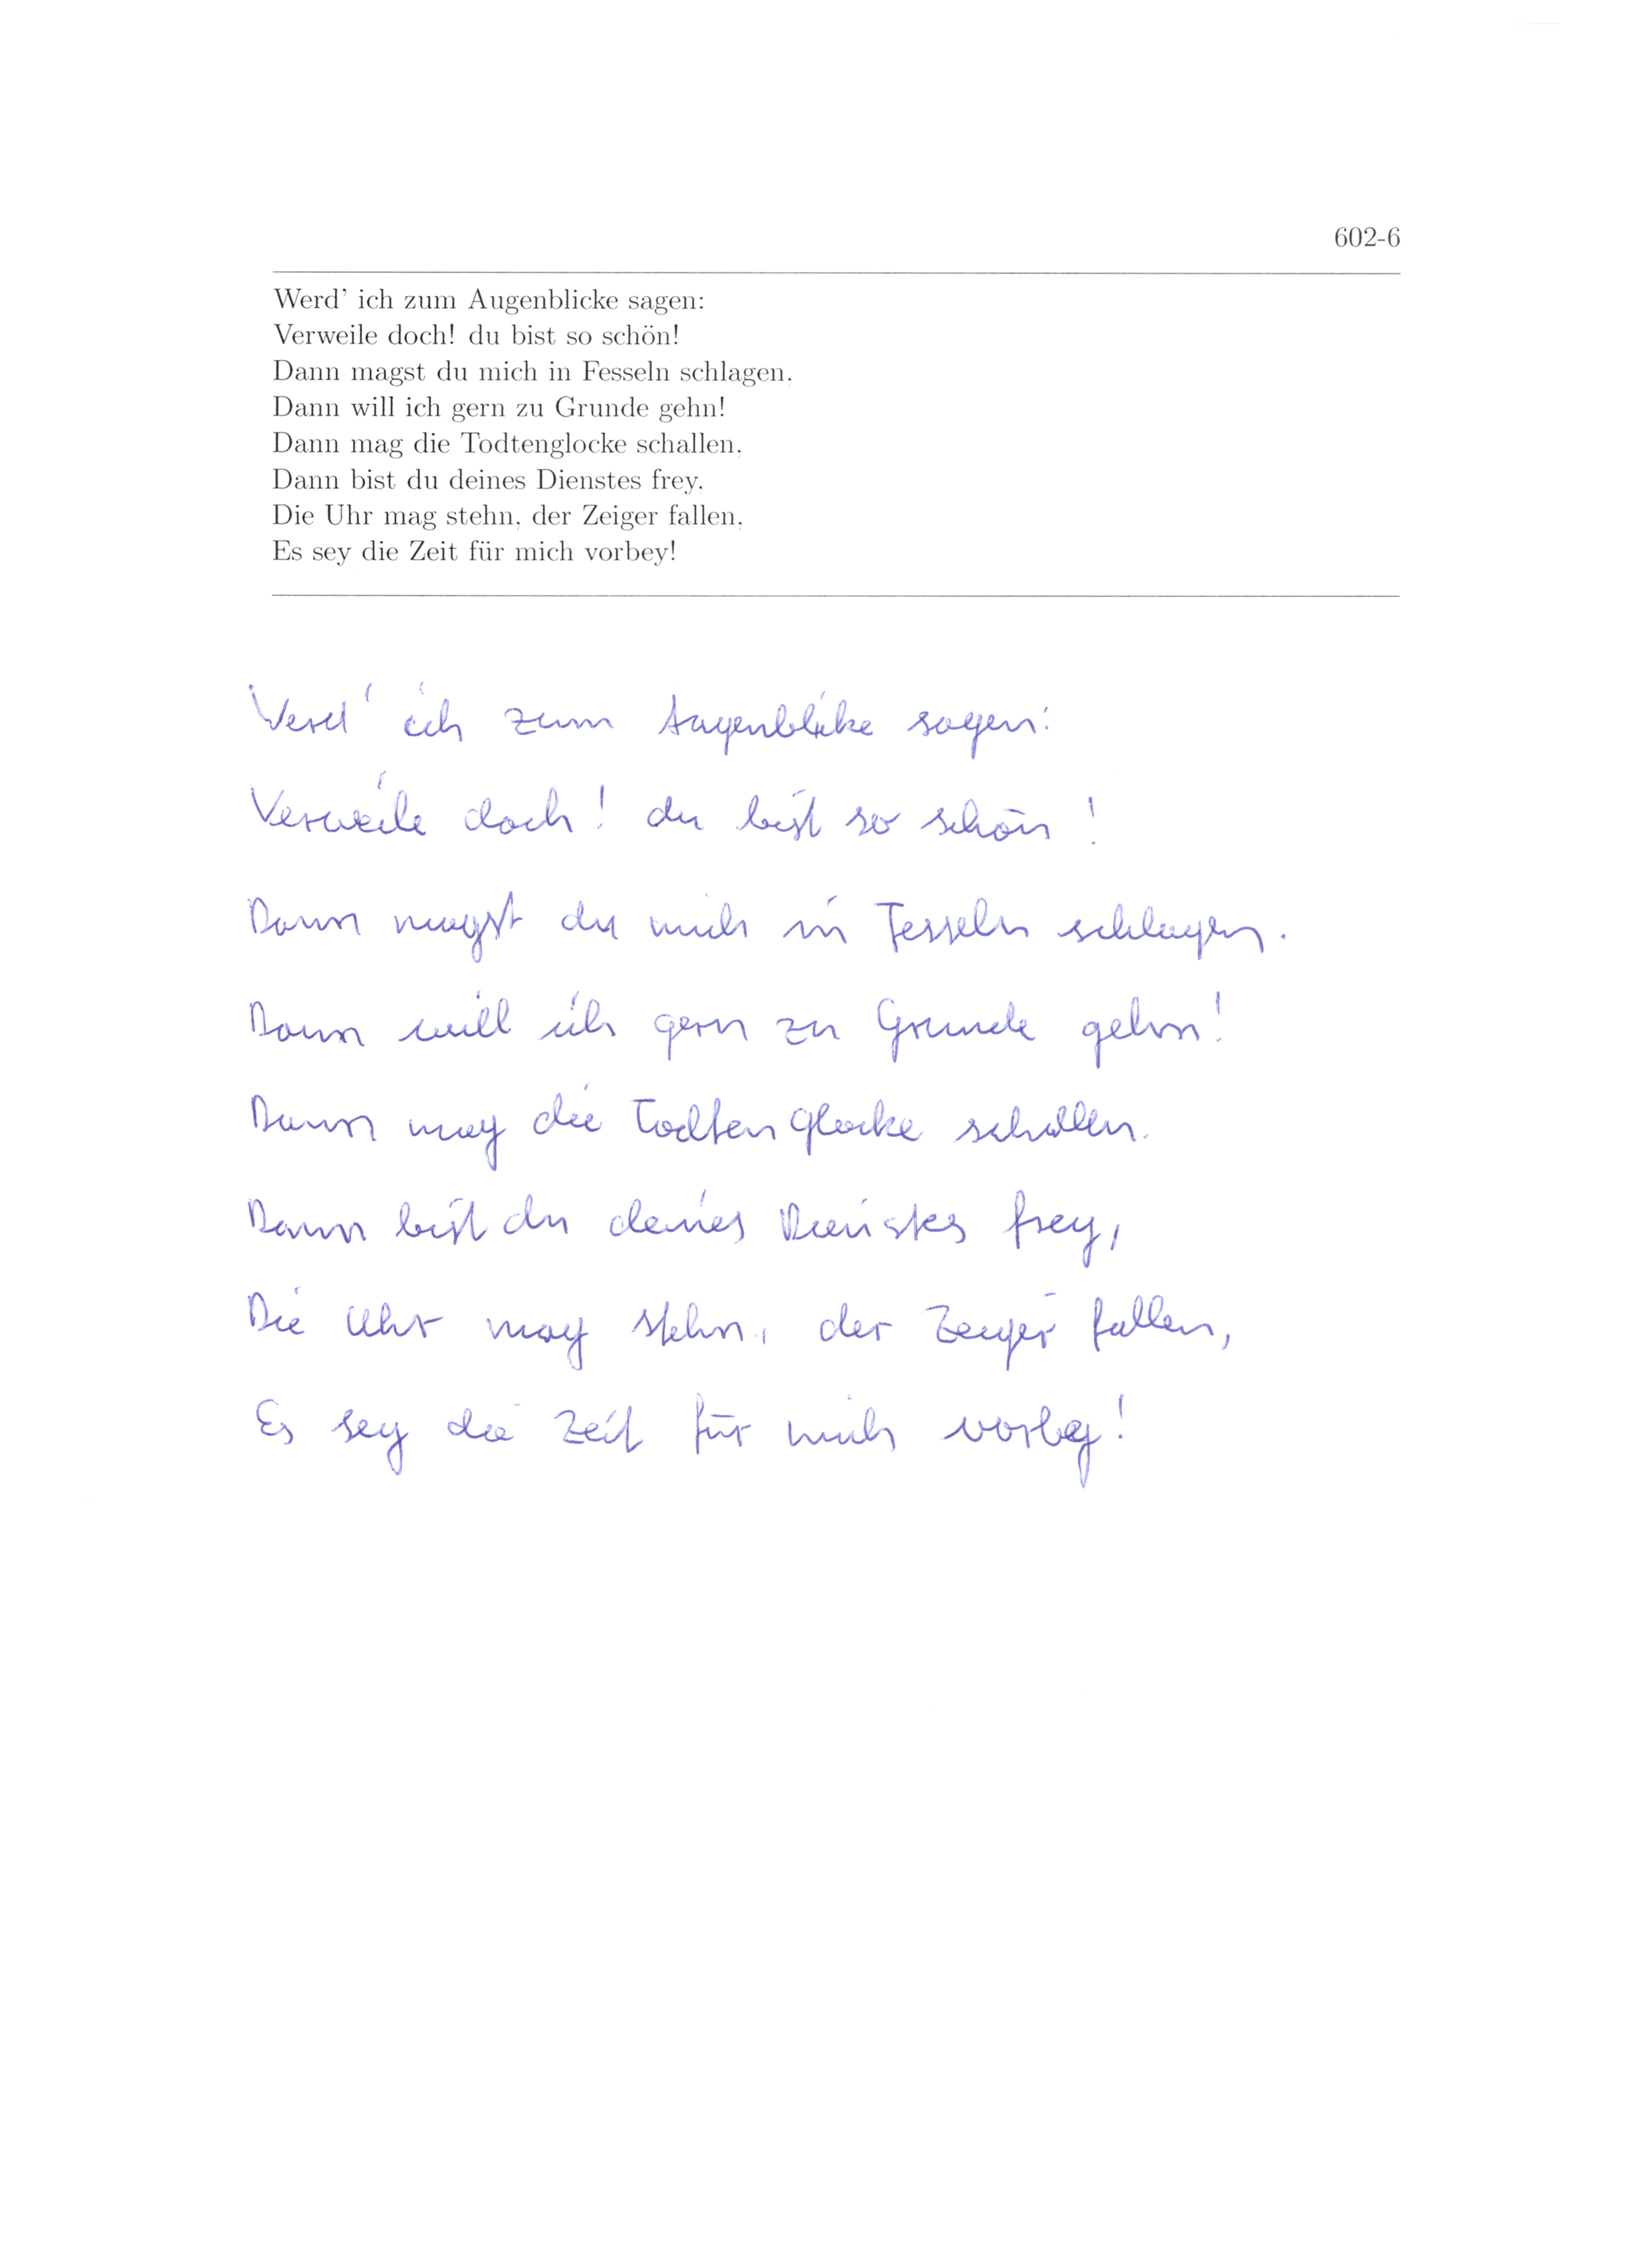 602-6
Werd' ich zum Augenblicke sagen:
Verweile doch! du bist so schön!
Dann magst du mich in Fesseln schlagen.
Dann will ich gern zu Grunde gehn!
Dann mag die Todtenglocke schallen.
Dann bist du deines Dienstes frey.
Die Uhr mag stehn. der Zeiger fallen.
Es sey die Zeit für mich vorbey!
Werd' ich zum Augenblicke sagen:
Verweile doch! du bist so schön!
Dann magst du mich in Fesseln schlagen.
Dann will ich gern zu Grunde gehn!
Dann mag die Todtenglocke schallen.
Dann bist du deines Dienstes frey,
Die Uhr mag stehn, der Zeiger fallen,
Es sey die Zeit für mich vorbey!